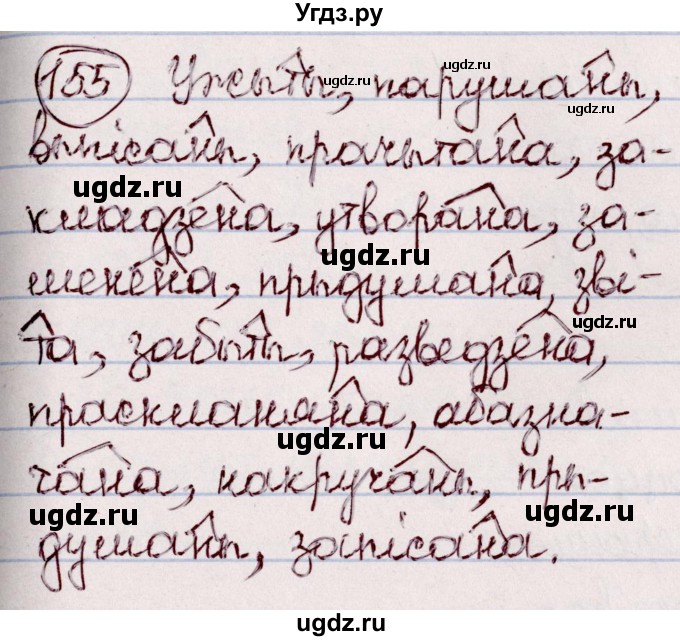 Угдз.ру
155 Ужыты, парушаны,
выпісаны, прачытана, за-
кладзена, утворана, за-
менена, прыдумана, зві-
та, забыты, разведзена,
праскланяна, абазна-
чана, накручаны, пры-
думаны, запісана.
ugdz.ru
ugdz.ru
ugdz.ru
ugdz.ru
ugdz.ru
ugdz.ru
ugdz.ru
ugdz.ru
ugdz.ru
ugdz.ru
ugdz.ru
ugdz.ru
ugdz.ru
ugdz.ru